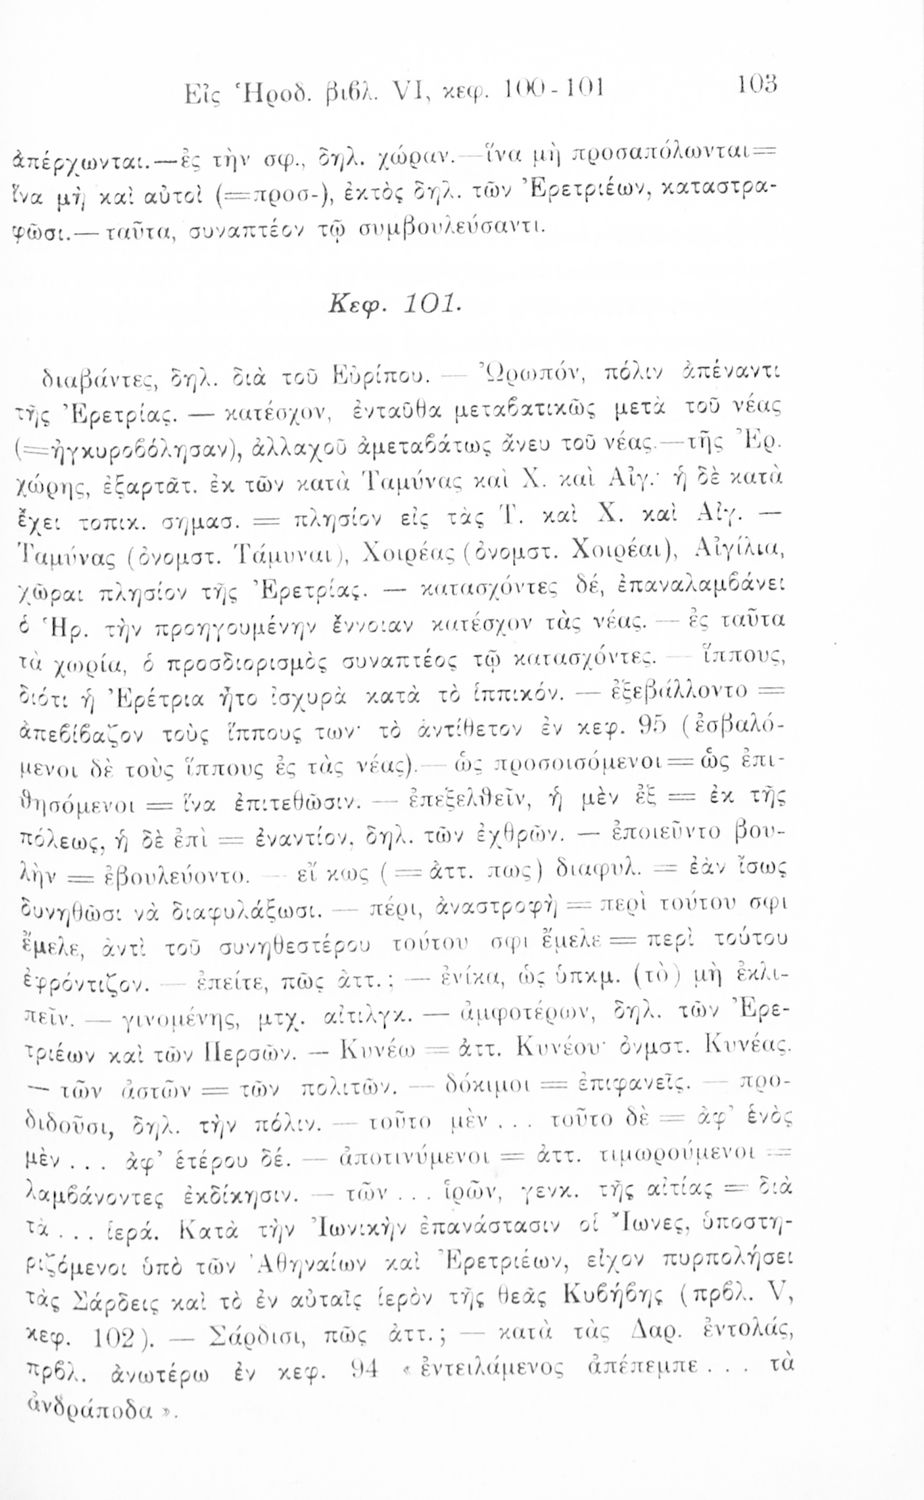 Εἰς Ἡροδ. βιβλ. VI, κεφ. 100-101 103
ἀπέρχωνται.—ἐς τὴν σφ., δηλ. χώραν.—ἵνα μὴ προσαπόλωνται=
ἵνα μὴ καὶ αὐτοὶ (=προσ-), ἐκτὸς δηλ. τῶν Ἐρετριέων, καταστρα-
φῶσι.— ταῦτα, συναπτέον τῷ συμβουλεύσαντι.
Κεφ. 101.
διαβάντες, δηλ. διὰ τοῦ Εὐρίπου. — Ὠρωπόν, πόλιν ἀπέναντι
τῆς Ἐρετρίας. — κατέσχον, ἐνταῦθα μεταβατικῶς μετὰ τοῦ νέας
(=ἠγκυροβόλησαν), ἀλλαχοῦ ἀμεταβάτως ἄνευ τοῦ νέας.—τῆς Ἐρ.
χώρης, ἐξαρτᾶτ. ἐκ τῶν κατὰ Ταμύνας καὶ Χ. καὶ Αἰγ.· ἡ δὲ κατὰ
ἔχει τοπικ. σημασ. = πλησίον εἰς τὰς Τ. καὶ Χ. καὶ Αἰγ. —
Ταμύνας (ὀνομστ. Τάμυναι), Χοιρέας (ὀνομστ. Χοιρέαι), Αἰγίλια,
χῶραι πλησίον τῆς Ἐρετρίας. — κατασχόντες δέ, ἐπαναλαμβάνει
ὁ Ἡρ. τὴν προηγουμένην ἔννοιαν κατέσχον τὰς νέας. — ἐς ταῦτα
τὰ χωρία, ὁ προσδιορισμὸς συναπτέος τῷ κατασχόντες. — ἵππους,
διότι ἡ Ἐρέτρια ἦτο ἰσχυρὰ κατὰ τὸ ἱππικόν. — ἐξεβάλλοντο =
ἀπεβίβαζον τοὺς ἵππους των· τὸ ἀντίθετον ἐν κεφ. 95 (ἐσβαλό-
μενοι δὲ τοὺς ἵππους ἐς τὰς νέας).— ὡς προσοισόμενοι = ὡς ἐπι-
θησόμενοι = ἵνα ἐπιτεθῶσιν. — ἐπεξελθεῖν, ἡ μὲν ἐξ = ἐκ τῆς
πόλεως, ἡ δὲ ἐπὶ = ἐναντίον, δηλ. τῶν ἐχθρῶν. — ἐποιεῦντο βου-
λὴν = ἐβουλεύοντο. — εἴ κως (= ἀττ. πως) διαφυλ. = ἐὰν ἴσως
δυνηθῶσι νὰ διαφυλάξωσι. — πέρι, ἀναστροφὴ = περὶ τούτου σφι
ἔμελε, ἀντὶ τοῦ συνηθεστέρου τούτου σφι ἔμελε = περὶ τούτου
ἐφρόντιζον. — ἐπείτε, πῶς ἀττ.; — ἐνίκα, ὡς ὑπκμ. (τὸ) μὴ ἐκλι-
πεῖν. — γινομένης, μτχ. αἰτιλγκ. — ἀμφοτέρων, δηλ. τῶν Ἐρε-
τριέων καὶ τῶν Περσῶν. — Κυνέω = ἀττ. Κυνέου· ὀνμστ. Κυνέας.
— τῶν ἀστῶν = τῶν πολιτῶν. — δόκιμοι = ἐπιφανεῖς. — προ-
διδοῦσι, δηλ. τὴν πόλιν. — τοῦτο μὲν ... τοῦτο δὲ = ἀφ' ἑνὸς
μὲν ... ἀφ' ἑτέρου δέ. — ἀποτινύμενοι = ἀττ. τιμωρούμενοι =
λαμβάνοντες ἐκδίκησιν. — τῶν ... ἱρῶν, γενκ. τῆς αἰτίας = διὰ
τὰ ... ἱερά. Κατὰ τὴν Ἰωνικὴν ἐπανάστασιν οἱ Ἴωνες, ὑποστη-
ριζόμενοι ὑπὸ τῶν Ἀθηναίων καὶ Ἐρετριέων, εἶχον πυρπολήσει
τὰς Σάρδεις καὶ τὸ ἐν αὐταῖς ἱερὸν τῆς θεᾶς Κυβήβης (πρβλ. V,
κεφ. 102). — Σάρδισι, πῶς ἀττ.; — κατὰ τὰς Δαρ. ἐντολάς,
πρβλ. ἀνωτέρω ἐν κεφ. 94 « ἐντειλάμενος ἀπέπεμπε ... τὰ
ἀνδράποδα ».